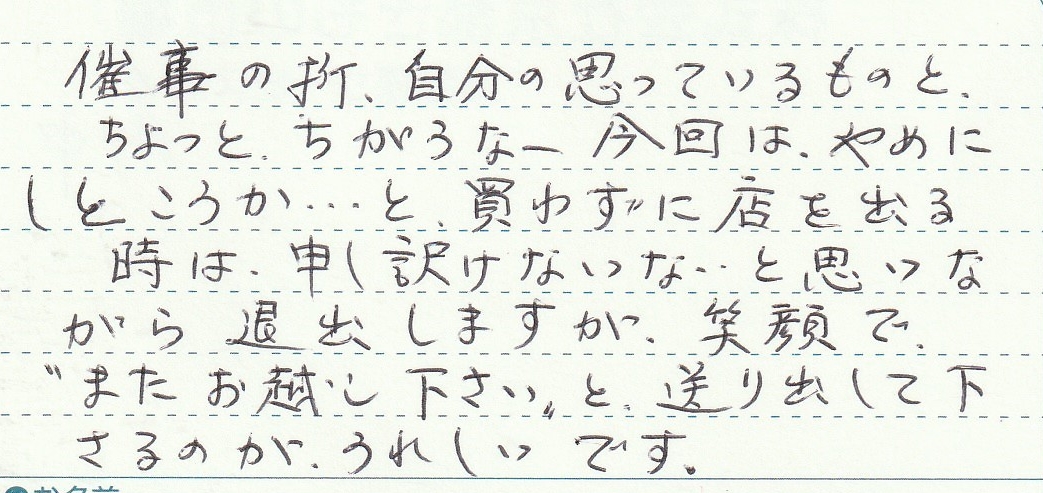 催事の折、自分の思っているものと、
ちょっと、ちがうなー 今回は、やめに
しとこうか…と、買わずに店を出る
時は、申し訳けないな‥と思いな
がら退出しますが、笑顔で、
〝またお越し下さい〟と、送り出して下
さるのが、うれしいです。